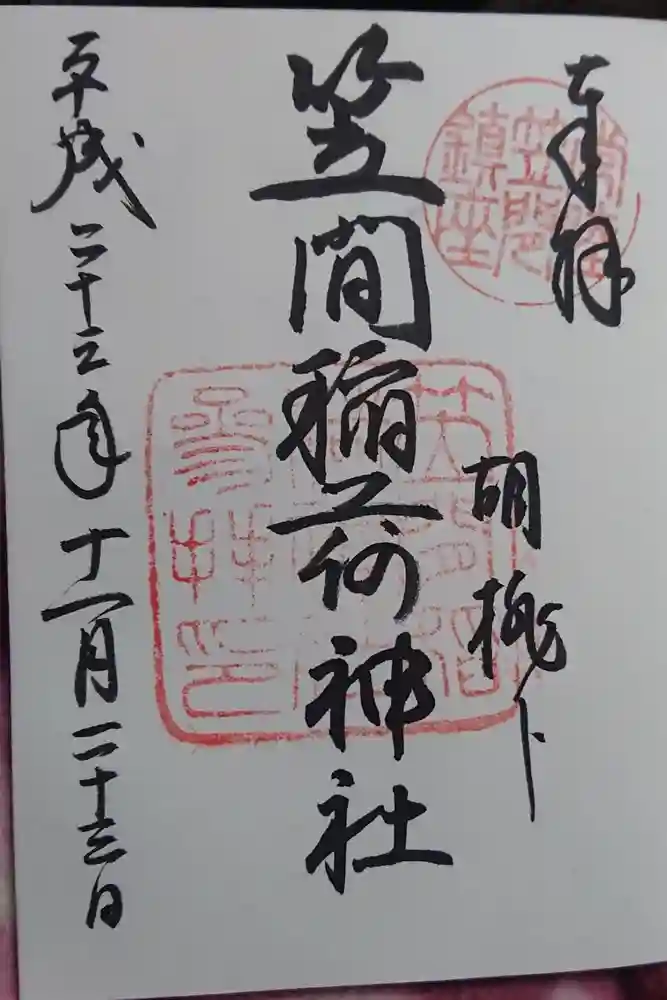 奉拝
常陸
笠間
鎮座
胡桃下
笠間稲荷神社
笠間稲
参拝印
平成二十三年十一月二十三日